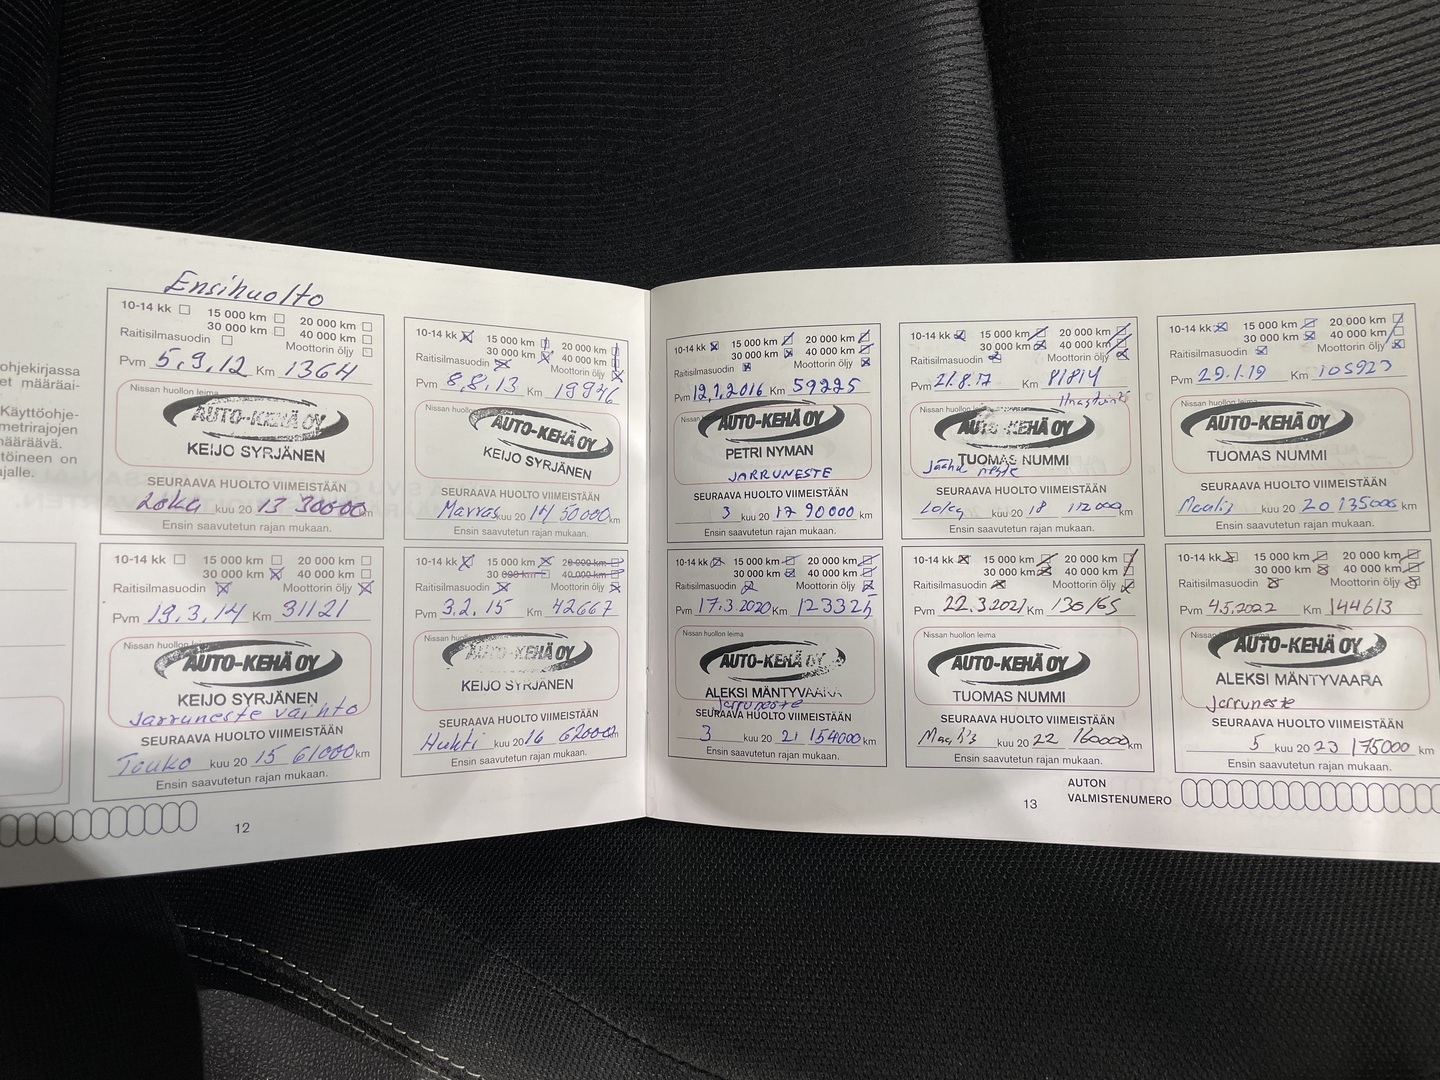 ohjekirjassa
et määräai-
Käyttöohje-
metrirajojen
määräävä.
töineen on
ajalle.
Ensihuolto
10-14 kk 15 000 km 20 000 km
30 000 km 40 000 km
Raitisilmasuodin Moottorin öljy
Pvm 5.9.12 Km 1364
Nissan huollon leima
AUTO-KEHÄ OY
KEIJO SYRJÄNEN
SEURAAVA HUOLTO VIIMEISTÄÄN
Loka kuu 20 13 30000 km
Ensin saavutetun rajan mukaan.
10-14 kk 15 000 km 20 000 km
30 000 km 40 000 km
Raitisilmasuodin Moottorin öljy
Pvm 8.8.13 Km 19946
Nissan huollon
AUTO-KEHÄ OY
KEIJO SYRJÄNEN
SEURAAVA HUOLTO VIIMEISTÄÄN
Marras kuu 20 14 50000 km
Ensin saavutetun rajan mukaan.
10-14 kk 15 000 km 20 000 km
30 000 km 40 000 km
Raitisilmasuodin Moottorin öljy
Pvm 19.3.14 Km 31121
Nissan huollon leima
AUTO-KEHÄ OY
KEIJO SYRJÄNEN
Jarruneste vaihto
SEURAAVA HUOLTO VIIMEISTÄÄN
Touko kuu 20 15 61000 km
Ensin saavutetun rajan mukaan.
10-14 kk 15 000 km 20 000 km
30 000 km 40 000 km
Raitisilmasuodin Moottorin öljy
Pvm 3.2.15 Km 42667
Nissan huollon
AUTO-KEHÄ OY
KEIJO SYRJÄNEN
SEURAAVA HUOLTO VIIMEISTÄÄN
Huhti kuu 20 16 62000 km
Ensin saavutetun rajan mukaan.
12
10-14 kk 15 000 km 20 000 km
30 000 km 40 000 km
Raitisilmasuodin Moottorin öljy
Pvm 19.1.2016 Km 59225
Nissan huollon
AUTO-KEHÄ OY
PETRI NYMAN
JARRUNESTE
SEURAAVA HUOLTO VIIMEISTÄÄN
3 kuu 20 17 90000 km
Ensin saavutetun rajan mukaan.
10-14 kk 15 000 km 20 000 km
30 000 km 40 000 km
Raitisilmasuodin Moottorin öljy
Pvm 21.8.17 Km 81814
Nissan huollon
AUTO-KEHÄ OY
TUOMAS NUMMI
Jäähd neste
SEURAAVA HUOLTO VIIMEISTÄÄN
Loka kuu 20 18 112000 km
Ensin saavutetun rajan mukaan.
10-14 kk 15 000 km 20 000 km
30 000 km 40 000 km
Raitisilmasuodin Moottorin öljy
Pvm 29.1.19 Km 105923
Nissan huollon leima
AUTO-KEHÄ OY
TUOMAS NUMMI
SEURAAVA HUOLTO VIIMEISTÄÄN
Maalis kuu 20 20 135000 km
Ensin saavutetun rajan mukaan.
10-14 kk 15 000 km 20 000 km
30 000 km 40 000 km
Raitisilmasuodin Moottorin öljy
Pvm 17.3.2020 Km 123325
Nissan huollon leima
AUTO-KEHÄ OY
ALEKSI MÄNTYVAARA
Jarruneste
SEURAAVA HUOLTO VIIMEISTÄÄN
3 kuu 20 21 154000 km
Ensin saavutetun rajan mukaan.
10-14 kk 15 000 km 20 000 km
30 000 km 40 000 km
Raitisilmasuodin Moottorin öljy
Pvm 22.3.2021 Km 130165
Nissan huollon leima
AUTO-KEHÄ OY
TUOMAS NUMMI
SEURAAVA HUOLTO VIIMEISTÄÄN
Maalis kuu 20 22 160000 km
Ensin saavutetun rajan mukaan.
10-14 kk 15 000 km 20 000 km
30 000 km 40 000 km
Raitisilmasuodin Moottorin öljy
Pvm 4.5.2022 Km 144613
Nissan huollon
AUTO-KEHÄ OY
ALEKSI MÄNTYVAARA
Jarruneste
SEURAAVA HUOLTO VIIMEISTÄÄN
5 kuu 20 23 175000 km
Ensin saavutetun rajan mukaan.
13
AUTON
VALMISTENUMERO